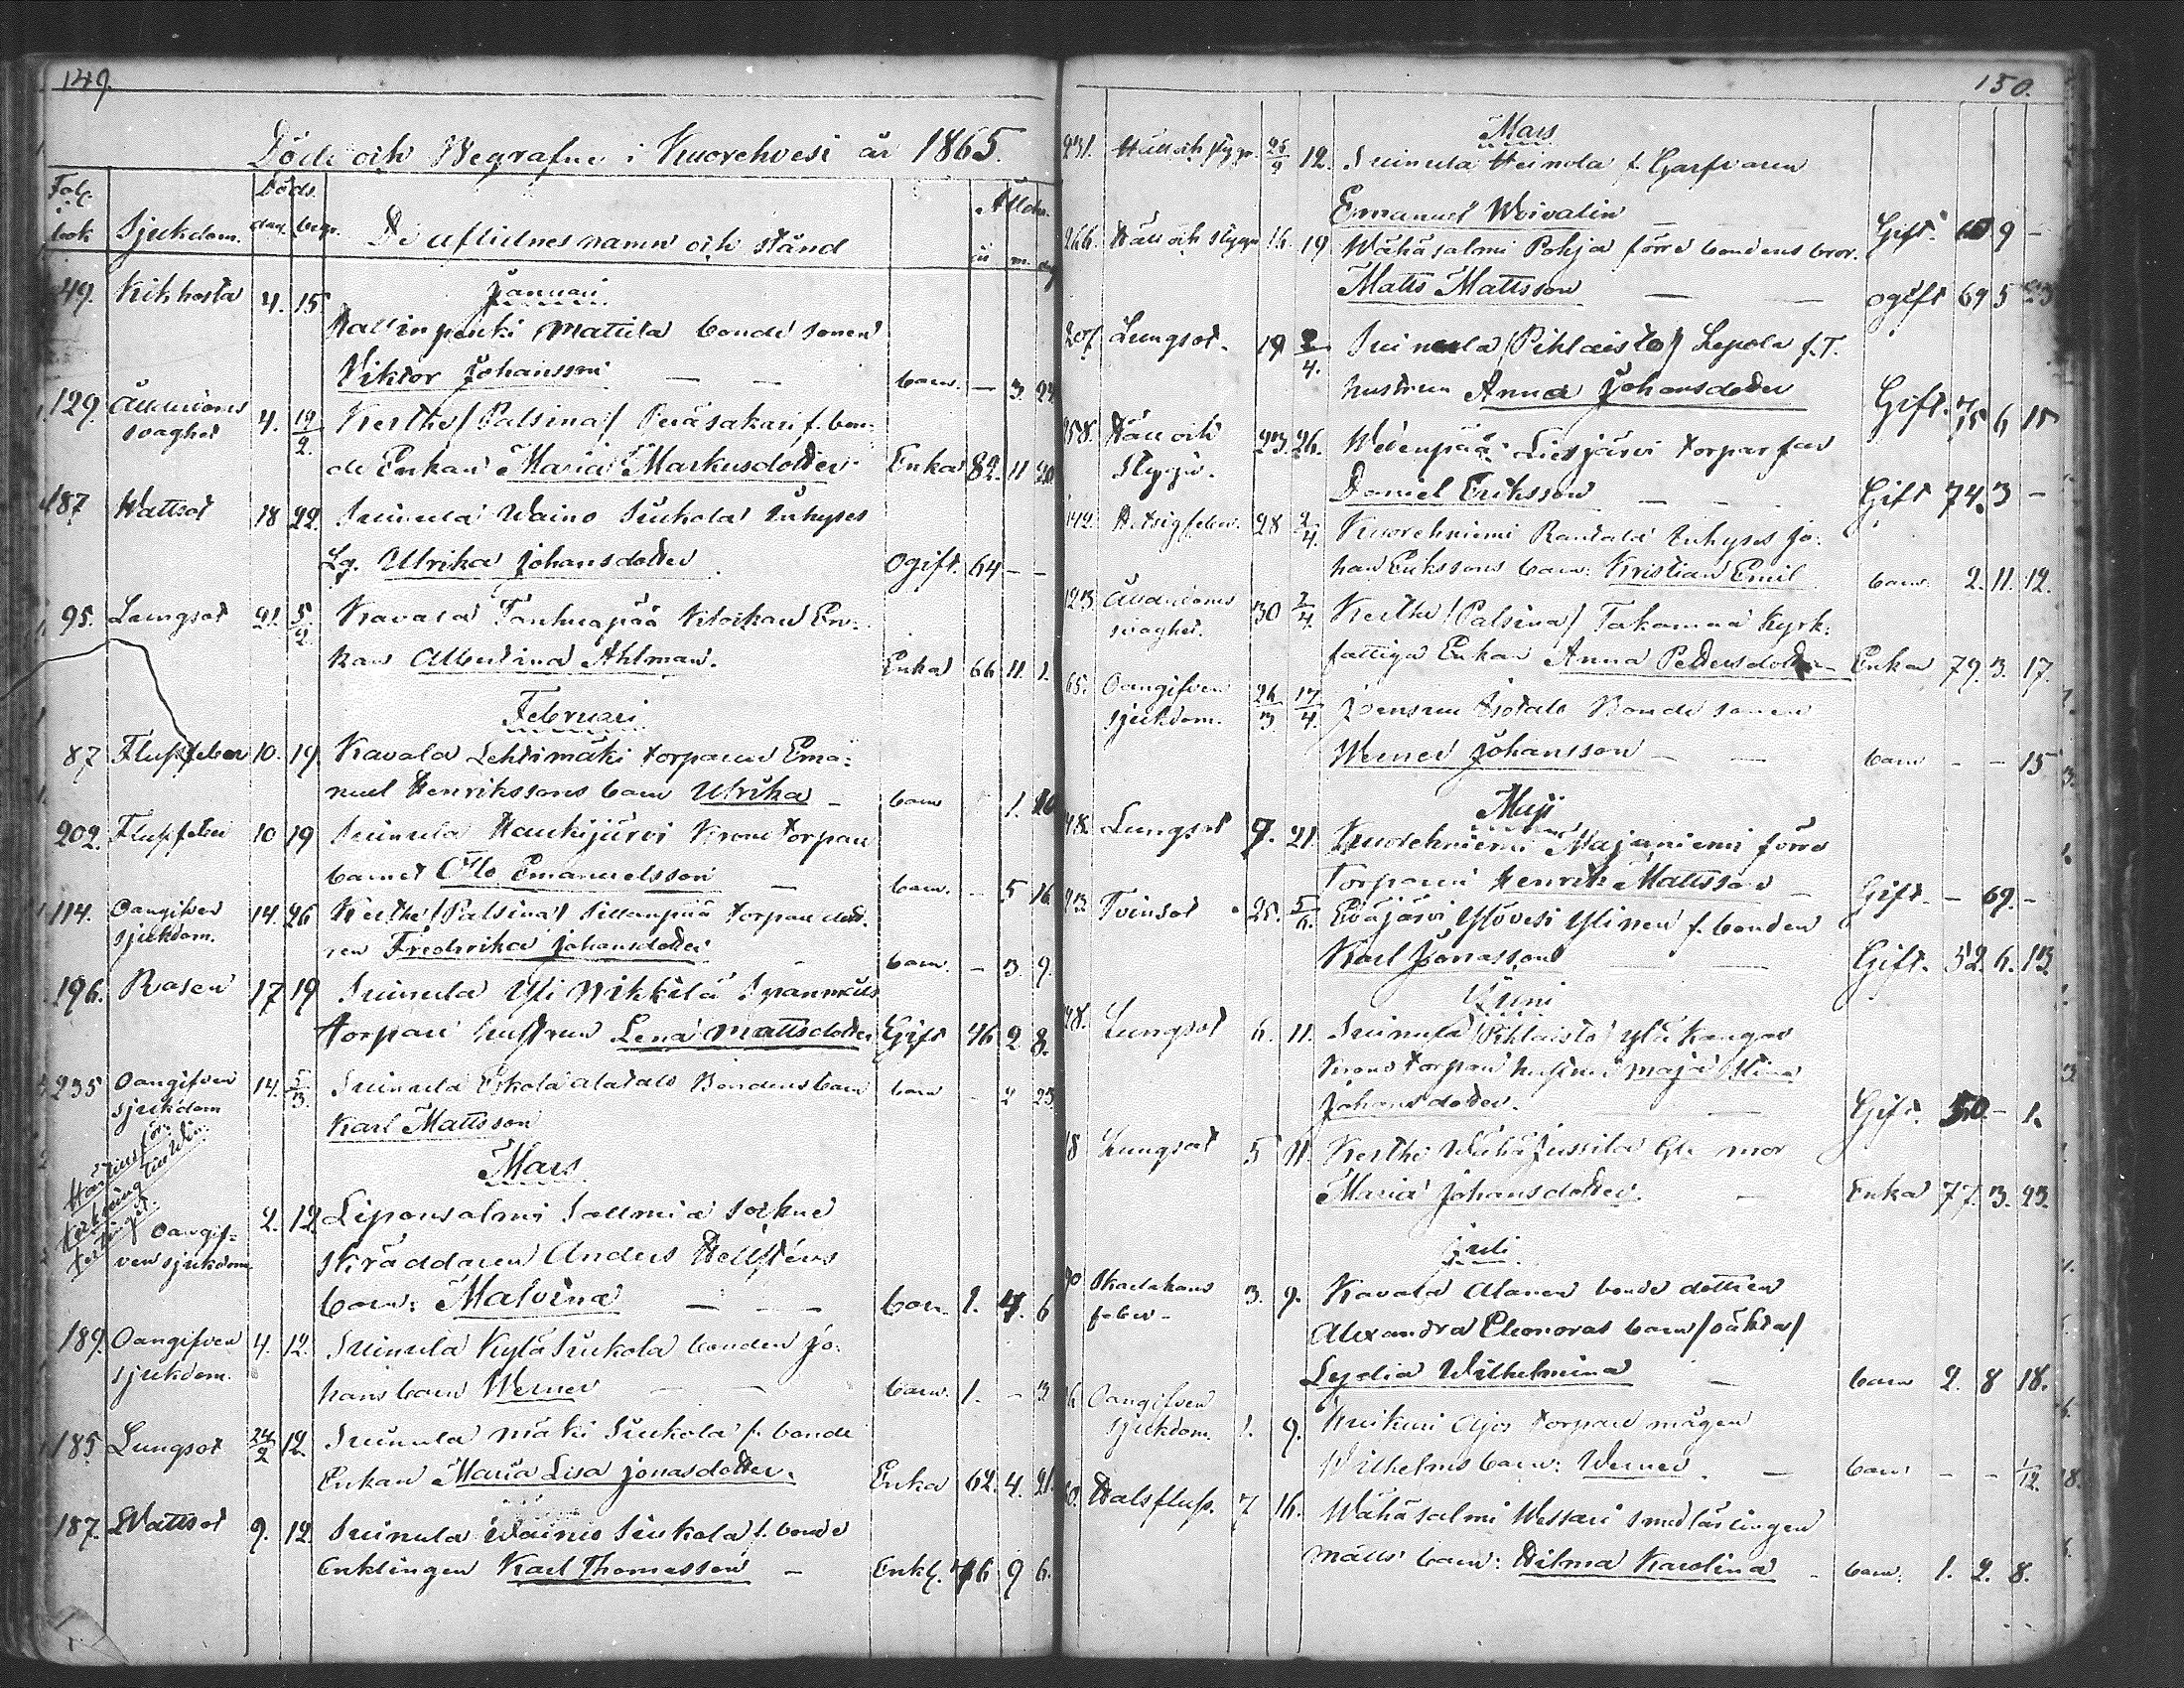 149.
Döde och Begrafne i Kuorehvesi år 1865.
Döds. Ålder.
bok Sjukdom. dag. begr. De aflidnes namn och stånd år m. dag
Januari
49. Kikhosta 4. 15
Mattila bonde sonen
Viktor Johansson — — barn. — 3. 24
129. Ålderdoms svaghet 4. 12/2. Kertte /Palsina/ Peräsakari f. bon-
de Enkan Maria Markusdotter Enka 82. 11 20
187 Wattsot 18 22. Suinula Waino Siukola Inhyses
Lg. Ulrika Johansdotter. Ogift. 64 — —
95. Lungsot 21. 5/2. Kavala Tanhuapää Klockare En-
kan Albertina Ahlman. Enka 66 11. 1.
Februari
87 Flussfeber 10. 19 Kavala Lehtimäki torparen Ema-
nuel Henrikssons barn Ulrika — barn 1. 10
202. Flussfeber 10 19 Suinula Haukijärvi Krono torpare
barnet Otto Emanuelsson — barn. — 5 16
114. Oangifven sjukdom. 14. 26 Kertte /Palsina/ Sillanpää torpare dott-
ren Fredrika Johansdotter — barn. — 3 9.
196. Rosen 17 19 Suinula Yli Mikkilä Spannmåls
torpare hustrun Lena Mattsdotter Gift 46 2 8.
235 Oangifven sjukdom 14. 5/3. Suinula Eskola alatalo Bondens barn barn - 2 23.
Karl Mattsson
Mars
Oangif-
ven sjukdom. 2. 12 Liponsalmi Sallmia sokne
skräddaren Anders Hellsténs
barn: Malvina — — barn. 1. 4. 6
189. Oangifven sjukdom. 4. 12. Suinula Kylä Siukola bonden Jo-
hans barn Werner — — barn. 1. — 3
185 Lungsot 24/2 12 Suinula mäki Siukola f. bonde
Enkan Maria Lisa Jonasdotter. Enka 62. 4. 21.
187. Wattsot 9. 12. Suinula Wainio Siukola f. bonde
Enklingen Karl Thomasson — Enkl. 76 9 6.
150.
Mars
231. Håll och stygn 25/2 12. Suinula Heinola f. Garfvaren
Emanuel Woivalin — Gift. 60 9 —
266. Håll och stygn 16. 19 Wähäsalmi Pohja förre bondens bror.
Matts Mattsson — — ogift 69 5
Lungsot. 19 2/4. Suinula /Pihlaisto/ Lepola f. T.
hustrun Anna Johansdotter Gift. 75 6 15
258. Håll och stygn. 23. 26. Wedenpää Liesjärvi torpar far
Daniel Eriksson — — Gift 74. 3 —
142. Hetsig feber. 28 2/4. Kuorehniemi Rantala Inhyses Jo-
han Erikssons barn: Kristian Emil barn. 2. 11. 12.
123 Ålderdoms svaghet. 30 2/4. Kertte /Palsina/ Takamaa Kyrk-
fattiga Enkan Anna Pettersdotter Enka 79. 3. 17.
65. Oangifven sjukdom. 26/3 17/4. Joensuu Isotalo Bonde sonen
Werner Johansson — — barn — — 15
Maji
Lungsot 7. 21. Kuorehniemi Majaniemi förre
Torparen Henrik Mattsson — Gift. — 69. —
Tvinsot 25. 5/6. Eväjärvi Ylövesi Ylinen f. bonden
Karl Jonasson — Gift. 52. 6. 13
Juni
Lungsot 6. 11. Suinula /Pihlaisto/ Ylä Kangas
Krono torpare hustrun Maja Stina
Johansdotter. — Gift. 50 — 1.
Lungsot 5 11. Kertte Wähä Jussila mor
Maria Johansdotter. — Enka 77. 3. 23.
Juli
Skarlakans feber — 3. 9. Kavala Alanen bonde dottren
Alexandra Eleonoras barn /oäkta/
Lydia Wilhelmina — barn 2. 8 18.
Oangifven sjukdom. 1. 9. Ajos torpare mågen
Wilhelms barn: Werner. — barn — — 1/12
Halsfluss. 7 16. Wähäsalmi Wessari smedlärlingen
Matts barn: Hilma Karolina — barn. 1. 2. 8.